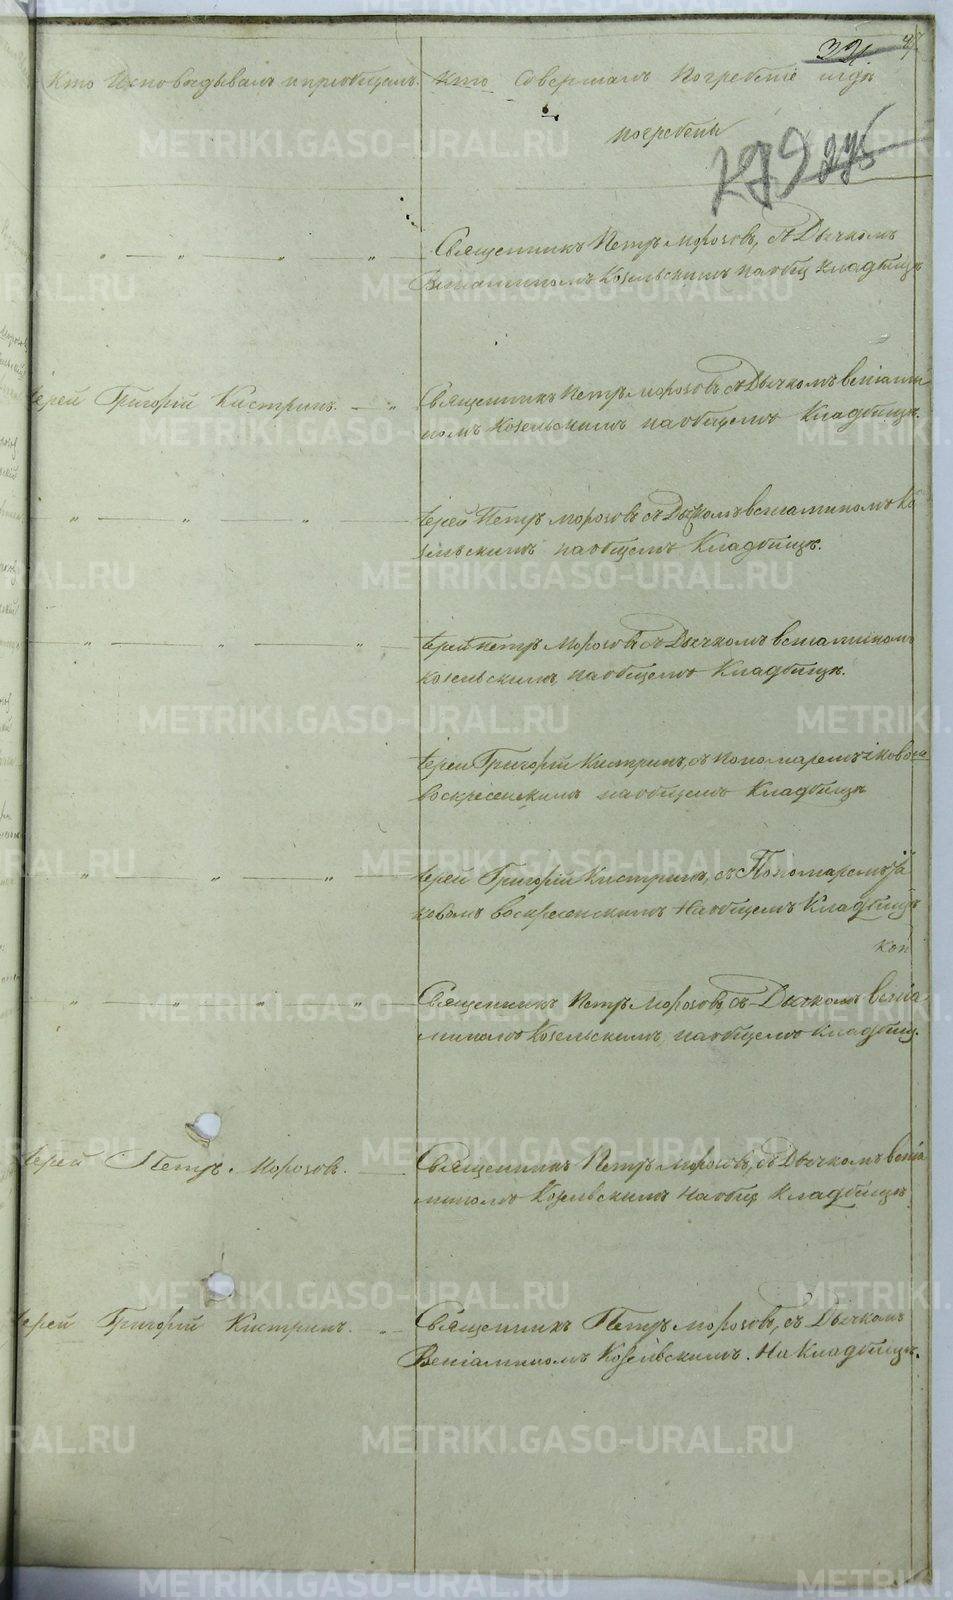 Кто Исповѣдывалъ и пріобщалъ.
Кто Совершалъ Погребеніе и гдѣ
погребены
Священникъ Петръ Морозовъ, съ Дьячкомъ
Веніаминомъ Козельскимъ на общ Кладбищѣ
Іерей Григорій Кистринъ.
Священникъ Петръ Морозовъ съ Дьячкомъ Веніами
номъ Козельскимъ на общемъ Кладбищѣ.
Іерей Петръ Морозовъ съ Дьячкомъ Веніаминомъ Ко
зельскимъ на общемъ Кладбищѣ.
Іерей Петръ Морозовъ съ Дьячкомъ Веніаминомъ
Козельскимъ, на общемъ Кладбищѣ.
Іерей Григорій Кистринъ, съ Пономаремъ Іаковомъ
Воскресенскимъ на общемъ Кладбищѣ
Іерей Григорій Кистринъ, съ Пономаремъ Іа
ковомъ Воскресенскимъ На общемъ Кладбищѣ
Священникъ Петръ Морозовъ, съ Дьячкомъ Веніа
миномъ Козельскимъ, на общемъ Кладбищ.
Іерей Петръ Морозовъ.
Священникъ Петръ Морозовъ, съ Дьячкомъ Веніа
миномъ Козельскимъ На общ Кладбищѣ
Іерей Григорій Кистринъ.
Священникъ Петръ Морозовъ, съ Дьячкомъ
Веніаминомъ Козельскимъ. На Кладбищѣ.
METRIKI.GASO-URAL.RU